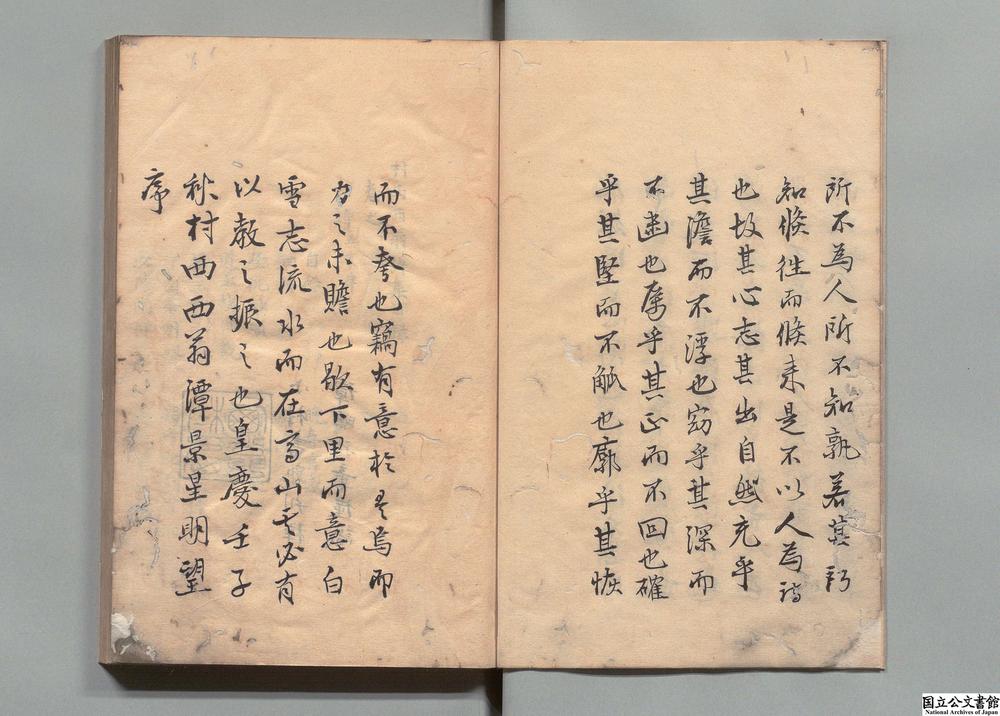 所不為人所不知孰若其所
知倏往而倏来是不以人為詩
也故其心志其出自然充乎
其澹而不浮也窈乎其深而
不迷也厲乎其正而不回也確
乎其堅而不觚也廓乎其恢
而不夸也竊有意於是焉而
力之未贍也歌下里而意白
雪志流水而在高山其必有
以教之振之也皇慶壬子
秋村西西翁潭景星明望
序
国立公文書館
National Archives of Japan